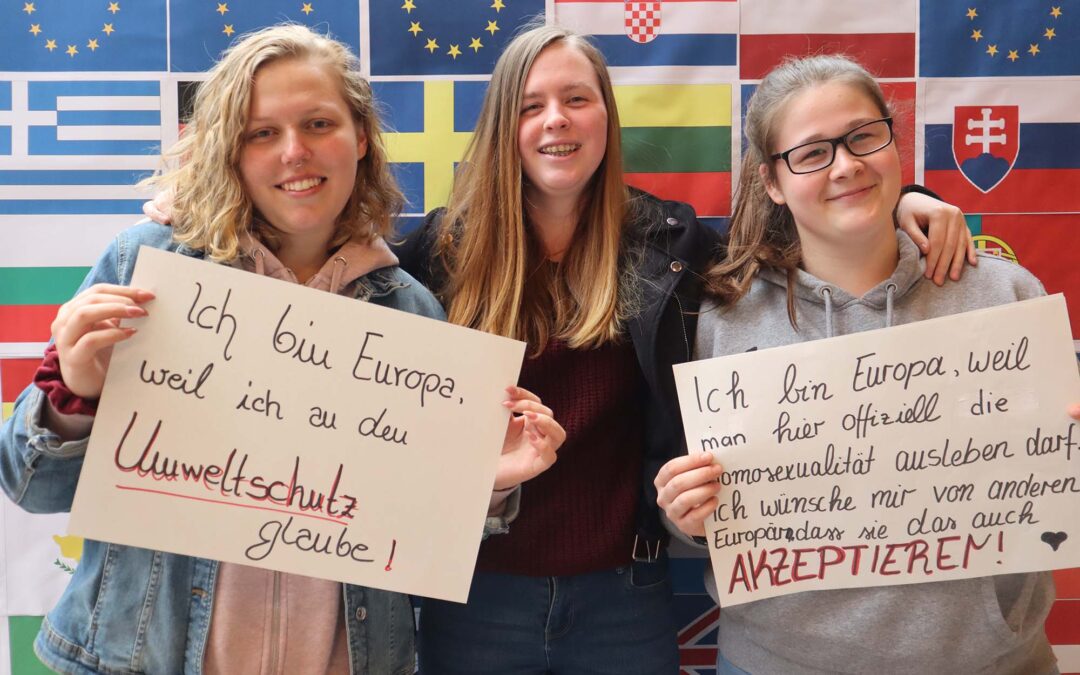 Ich bin Europa,
weil ich an den
Umweltschutz
glaube!
Ich bin Europa, weil
man hier offiziell die
omosexualität ausleben darf.
Ich wünsche mir von anderen
Europärn, dass sie das auch
AKZEPTIEREN!